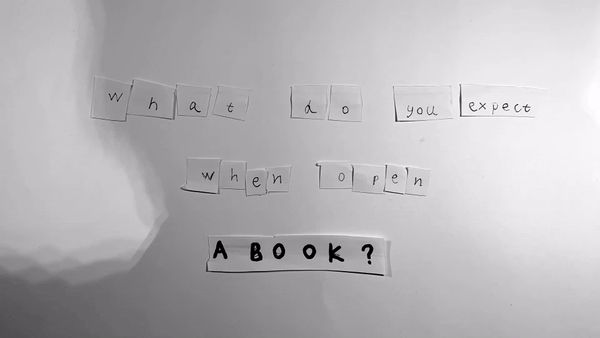 What do you expect
when open
A BOOK?